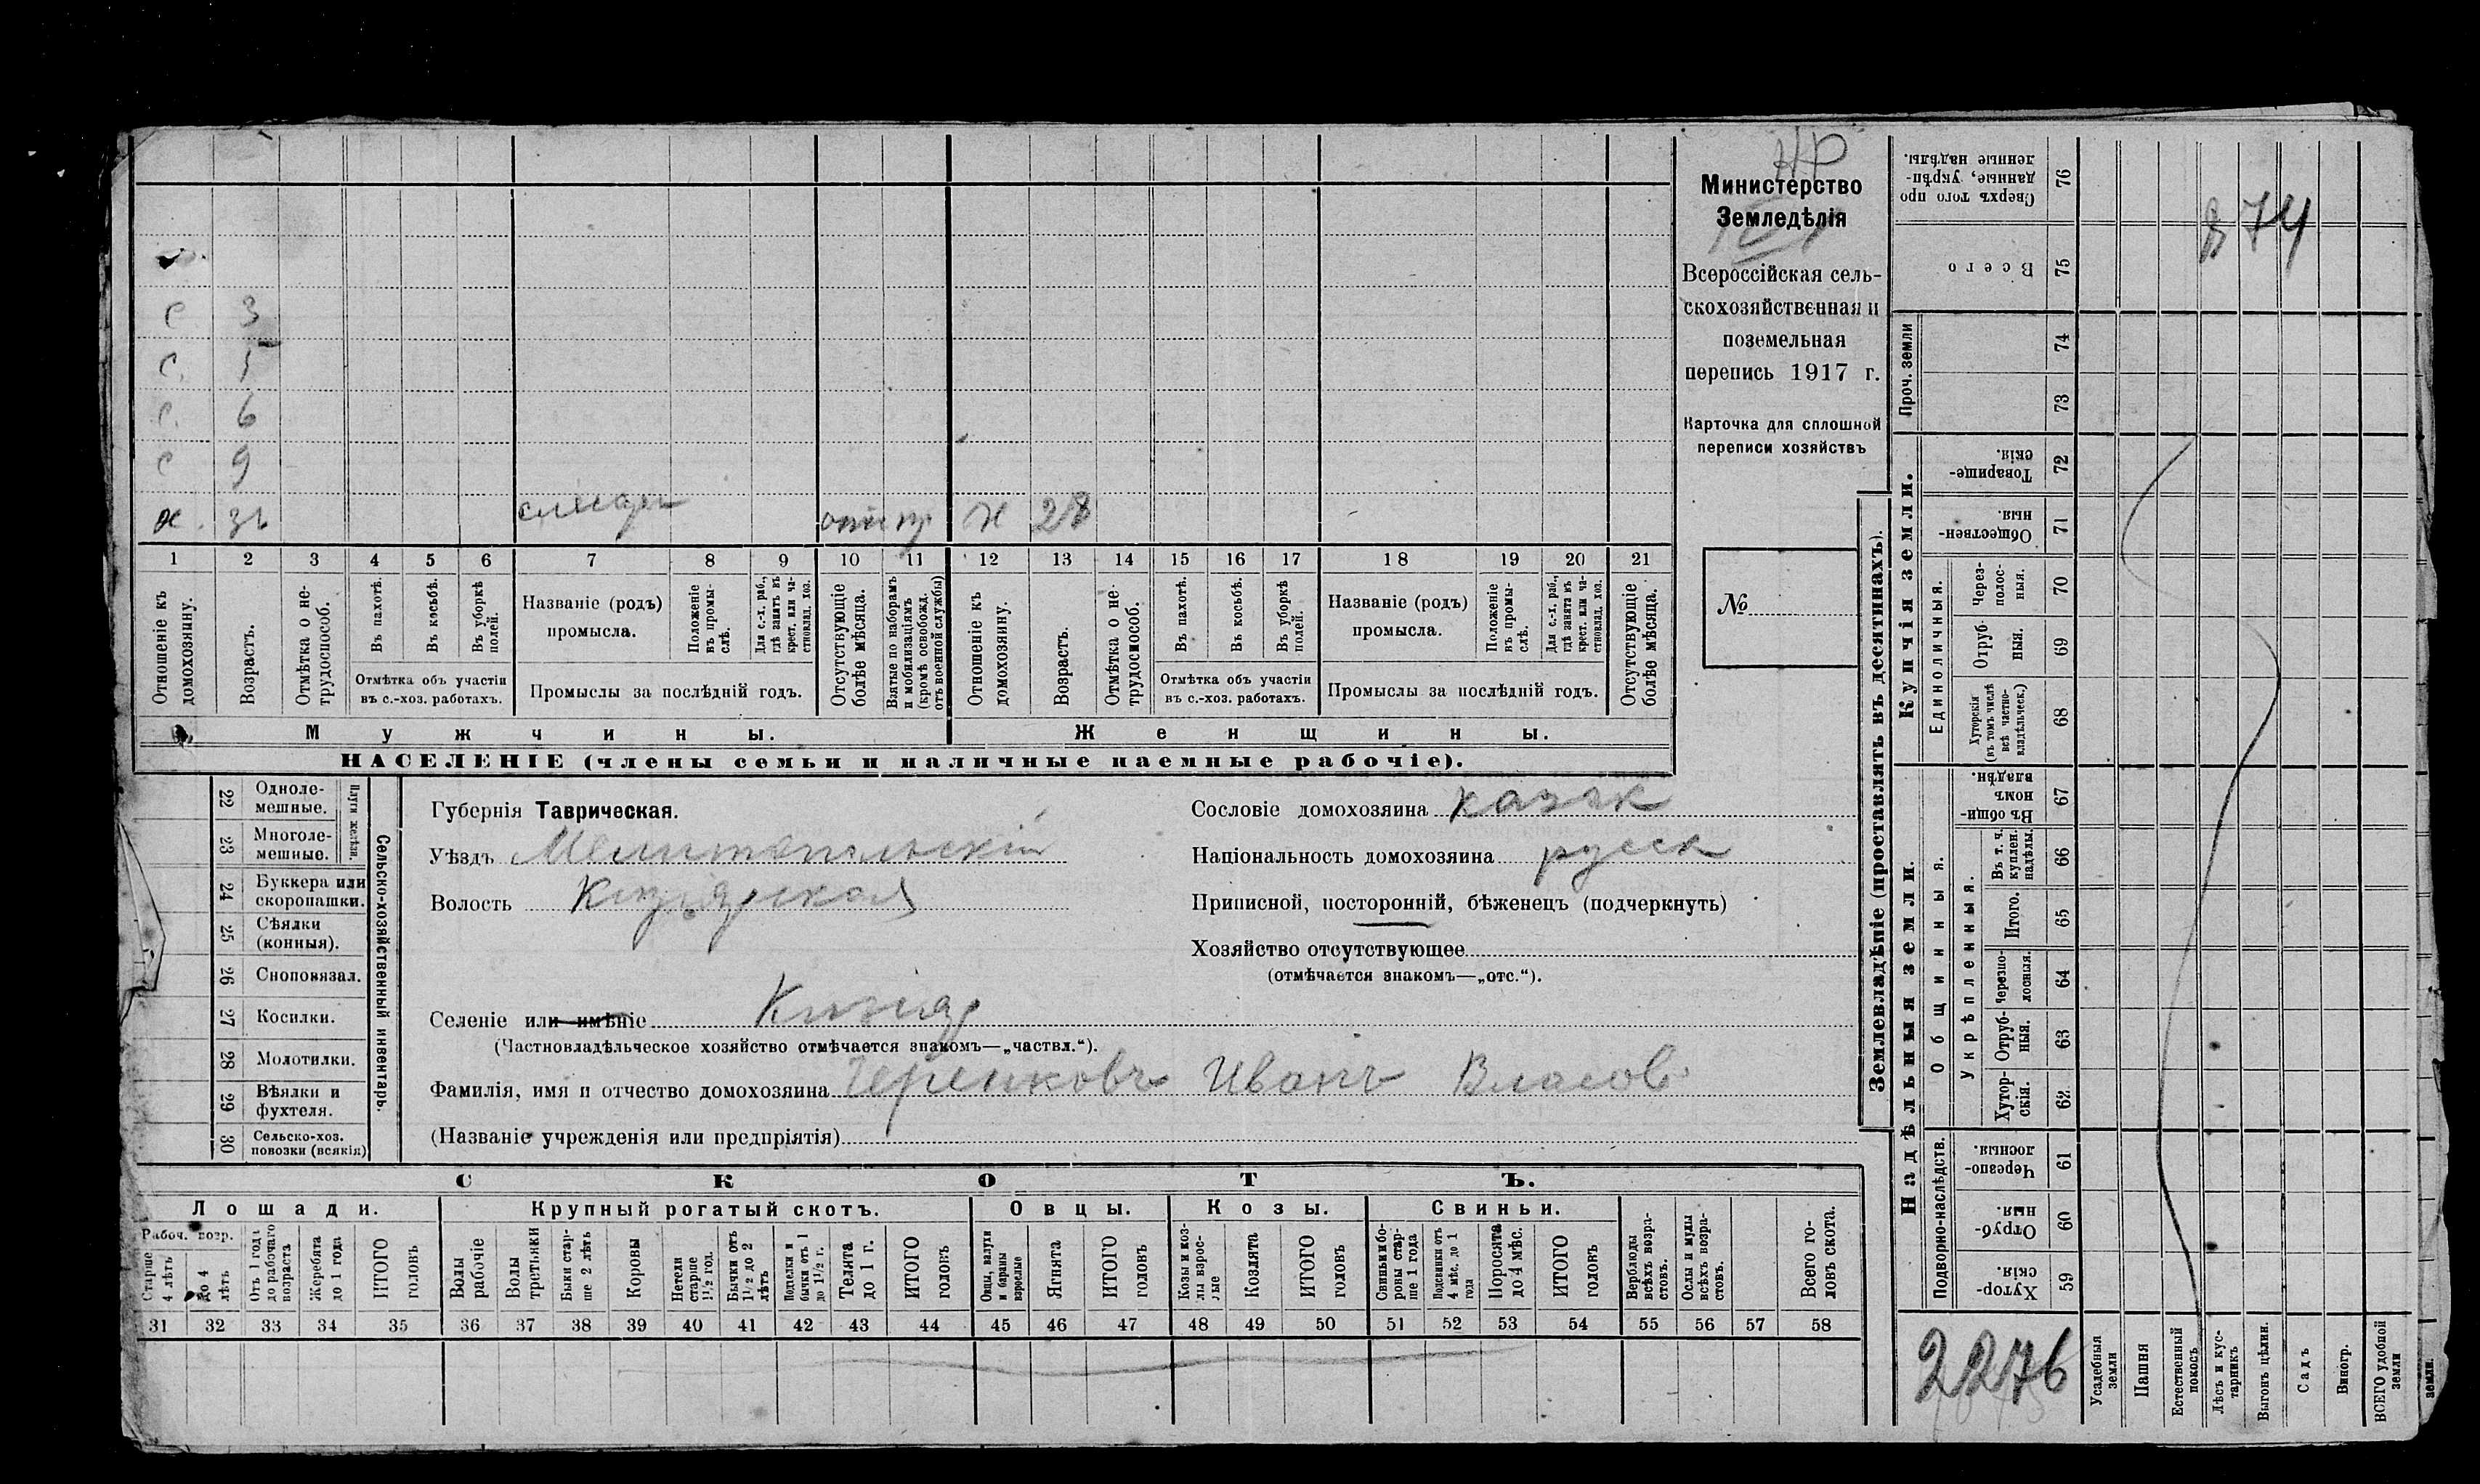 НР
Министерство
Земледѣлія
Всероссійская сель-
скохозяйственная и
поземельная
перепись 1917 г.
Карточка для сплошной
переписи хозяйствъ
№
с 3
с. 5
с. 6
с 9
х. слесарь ж 28
1 2 3 4 5 6 7 8 9 10 11 12 13 14 15 16 17 18 19 20 21
Отношеніе къ домохозяину.
Возрастъ.
Отмѣтка о не-трудоспособ.
Въ пахотѣ.
Въ косьбѣ.
Въ уборкѣ полей.
Отмѣтка объ участіи въ с.-хоз. работахъ.
Названіе (родъ) промысла.
Положеніе въ промы-слѣ.
Для с.-х. раб., гдѣ занятъ въ крест. или ча-стновлад. хоз.
Промыслы за послѣдній годъ.
Отсутствующіе болѣе мѣсяца.
Взятые по наборамъ и мобилизаціямъ (кромѣ освобожд. отъ военной службы)
Отношеніе къ домохозяину.
Возрастъ.
Отмѣтка о не-трудоспособ.
Въ пахотѣ.
Въ косьбѣ.
Въ уборкѣ полей.
Отмѣтка объ участіи въ с.-хоз. работахъ.
Названіе (родъ) промысла.
Положеніе въ промы-слѣ.
Для с.-х. раб., гдѣ занята въ крест. или ча-стновлад. хоз.
Промыслы за послѣдній годъ.
Отсутствующіе болѣе мѣсяца.
Мужчины. Женщины.
НАСЕЛЕНІЕ (члены семьи и наличные наемные рабочіе).
Сельско-хозяйственный инвентарь.
Плуги желѣзн.
22 Одноле-мешные.
23 Многоле-мешные.
24 Буккера или скоропашки.
25 Сѣялки (конныя).
26 Сноповязал.
27 Косилки.
28 Молотилки.
29 Вѣялки и фухтеля.
30 Сельско-хоз. повозки (всякія)
Губернія Таврическая.
Уѣздъ Мелитопольскій
Волость Кизіярская
Селеніе или имѣніе Кизіяр
(Частновладѣльческое хозяйство отмѣчается знакомъ—„частвл.“).
Фамилія, имя и отчество домохозяина Черенковъ Иванъ Власов
(Названіе учрежденія или предпріятія)
Сословіе домохозяина казак
Національность домохозяина русск
Приписной, посторонній, бѣженецъ (подчеркнуть)
Хозяйство отсутствующее
(отмѣчается знакомъ—„отс.“).
СКОТЪ.
Лошади. Крупный рогатый скотъ. Овцы. Козы. Свиньи.
Рабоч. возр.
Старше 4 лѣтъ
до 4 лѣтъ
Отъ 1 года до рабочаго возраста
Жеребята до 1 года
ИТОГО головъ
Волы рабочіе
Волы третьяки
Быки стар-ше 2 лѣтъ
Коровы
Нетели старше 1½ год.
Бычки отъ 1½ до 2 лѣтъ
Подтелки и бычки отъ 1 до 1½ г.
Телята до 1 г.
ИТОГО головъ
Овцы, валухи и бараны взрослые
Ягнята
ИТОГО головъ
Козы и коз-лы взрос-лые
Козлята
ИТОГО головъ
Свиньи и бо-ровы стар-ше 1 года
Подсвинки отъ 4 мѣс. до 1 года
Поросята до 4 мѣс.
ИТОГО головъ
Верблюды всѣхъ возра-стовъ.
Ослы и мулы всѣхъ возра-стовъ.
Всего го-ловъ скота.
31 32 33 34 35 36 37 38 39 40 41 42 43 44 45 46 47 48 49 50 51 52 53 54 55 56 57 58
Землевладѣніе (проставлять въ десятинахъ).
Купчія земли.
Надѣльныя земли.
Сверхъ того про-данные, укрѣп-ленные надѣлы. 76
Всего 75
Проч. земли 74 73
Товарище-скія. 72
Обществен-ныя. 71
Единоличныя.
Через-полос-ныя. 70
Отруб-ныя. 69
Хуторскія (въ томъ числѣ всѣ частно-владѣльческ.) 68
Общинныя.
Въ общин-номъ владѣн. 67
Укрѣпленныя.
Въ т. ч. куплен. надѣлы. 66
Итого. 65
Черезпо-лосныя. 64
Отруб-ныя. 63
Хутор-скія. 62
Подворно-наслѣдств.
Черезпо-лосныя. 61
Отруб-ныя. 60
Хутор-скія. 59
74
2276
Усадебныя земли
Пашня
Естественный покосъ
Лѣсъ и кус-тарникъ
Выгонъ цѣлин.
Садъ
Виногр.
ВСЕГО удобной земли
земли.